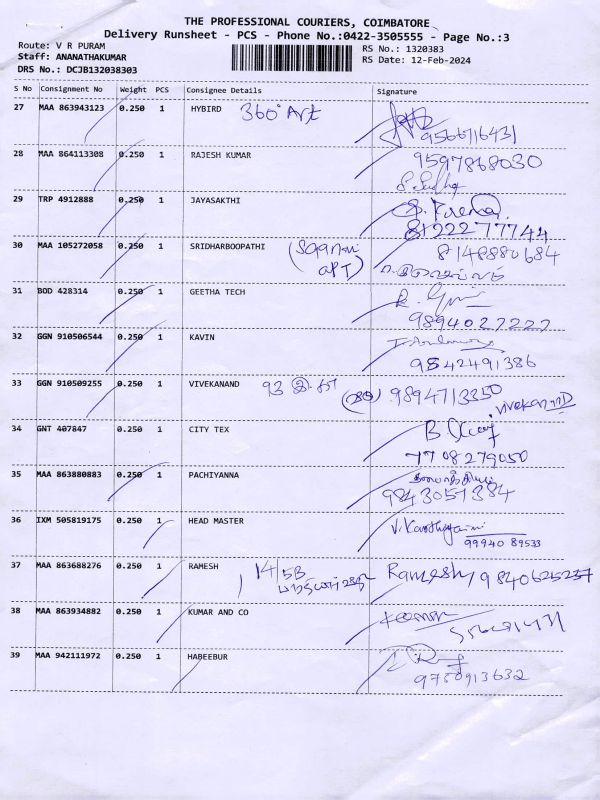 THE PROFESSIONAL COURIERS, COIMBATORE
Delivery Runsheet - PCS - Phone No.:0422-3505555 - Page No.:3
Route: V R PURAM
RS No.: 1320383
Staff: ANANATHAKUMAR
RS Date: 12-Feb-2024
DRS No.: DCJB132038303
S No Consignment No Weight PCS Consignee Details Signature
27 MAA 863943123 0.250 1 HYBIRD 360° Art
9566716431
28 MAA 864113308 0.250 1 RAJESH KUMAR 9597868030
29 TRP 4912888 0.250 1 JAYASAKTHI
8122277744
30 MAA 105272058 0.250 1 SRIDHARBOOPATHI 8148880684
31 BOD 428314 0.250 1 GEETHA TECH
9894027222
32 GGN 910506544 0.250 1 KAVIN
9542491386
33 GGN 910509255 0.250 1 VIVEKANAND 93 9894713350
VivekananD
34 GNT 407847 0.250 1 CITY TEX
7708279050
35 MAA 863880883 0.250 1 PACHIYANNA
9843051384
36 IXM 505819175 0.250 1 HEAD MASTER V. Karthyaini
99940 89533
37 MAA 863688276 0.250 1 RAMESH 14/5B Ramesh 9840625237
38 MAA 863934882 0.250 1 KUMAR AND CO
39 MAA 942111972 0.250 1 HABEEBUR
9750913632